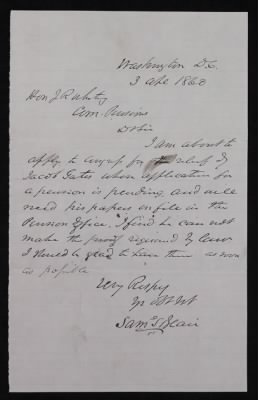 Washington D.C.
3 Apl 1860
Hon J
Com. Pensions
I am about to
apply to Congress for the relief of
Jacob Gates whose application for
a pension is pending and will
need his papers on file in the
Pension Office. I find he can not
make the proof required by law
I should be glad to have them as soon
as possible
Very Respy
Yr Obt Svt
Saml S Blair